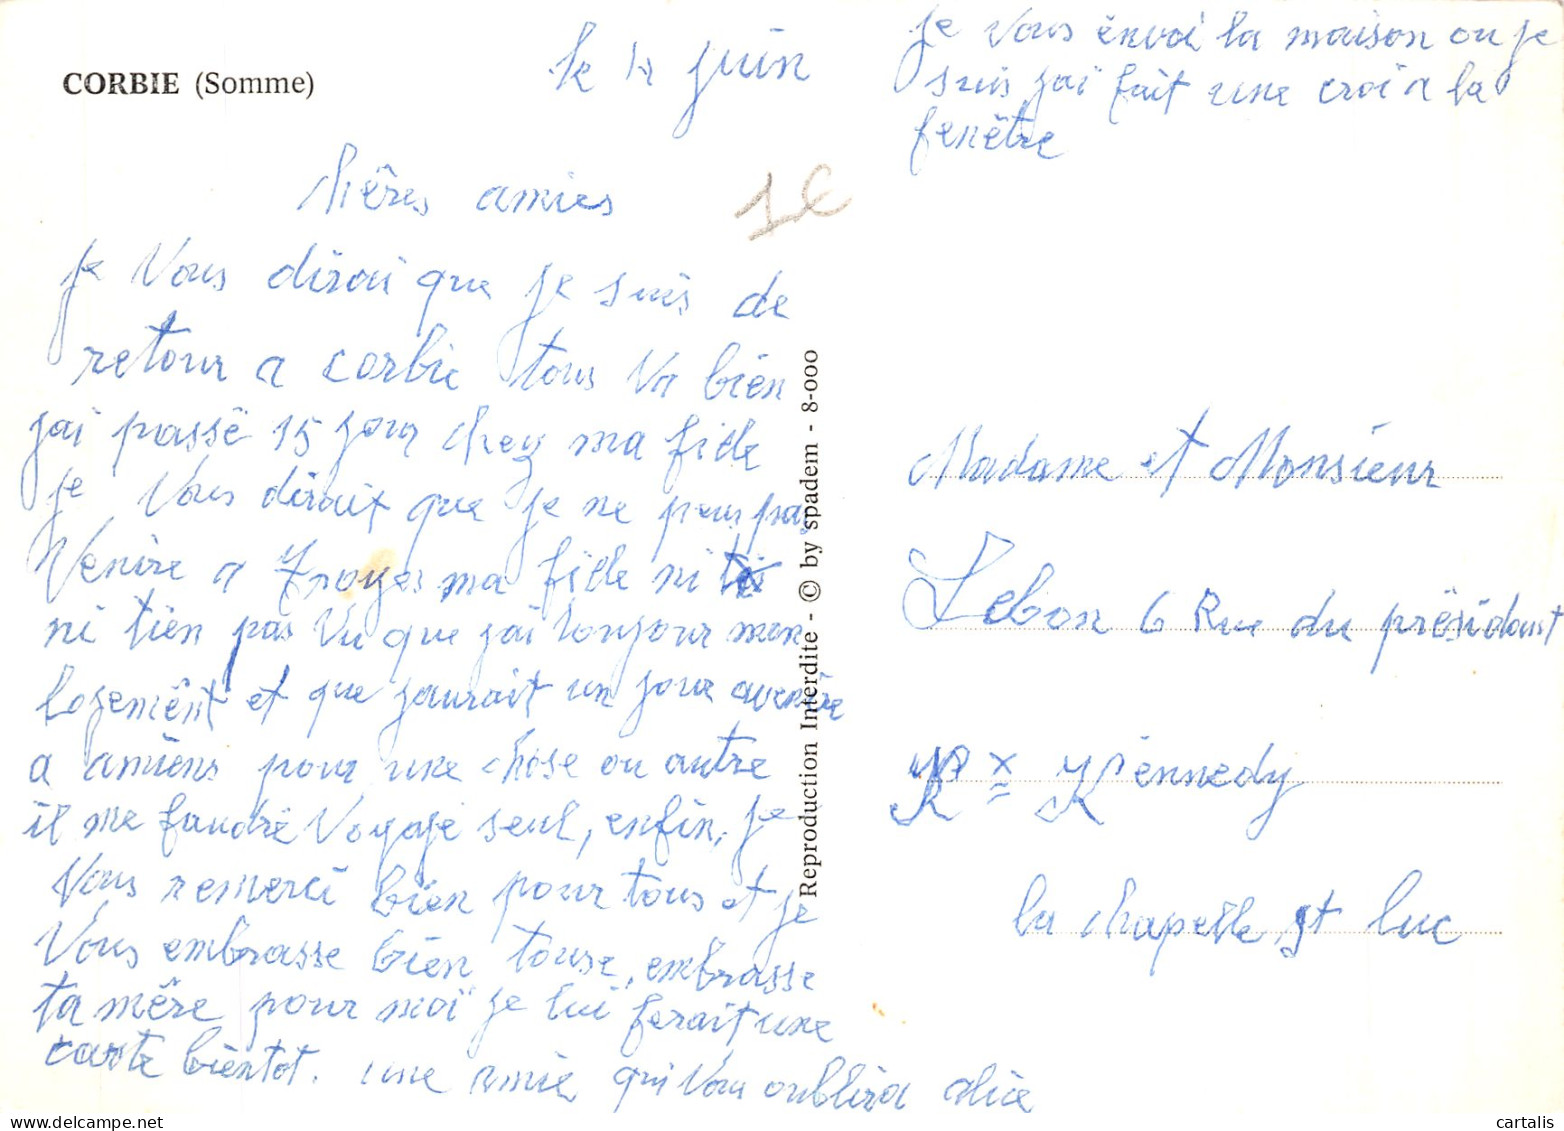 CORBIE (Somme)
le 4 juin
chêres amies
je Vous dirai que je suis de
retour a corbie tous Va bien
jai passé 15 jour chez ma fille
je Vous diraix que je ne peus pas
Venire a Troyes ma fille ni
ni tien pas Vu que jai toujour mon
logemênt et que jaurait un jour avenire
a amiens pour une chose ou autre
il me faudré Voyage seul, enfin, je
Vous remerci bien pour tous et je
Vous embrasse bien touse, embrasse
ta mêre pour moi je lui ferait une
carte bientot. une amie qui Vous oublira alice
Reproduction Interdite - © by spadem - 8-000
1€
je Vous envoi la maison ou je
suis jai fait une croi a la
fenêtre
Madame et Monsieur
Lebon 6 Rue du présidant
Kennedy
la chapelle st luc
cartalis